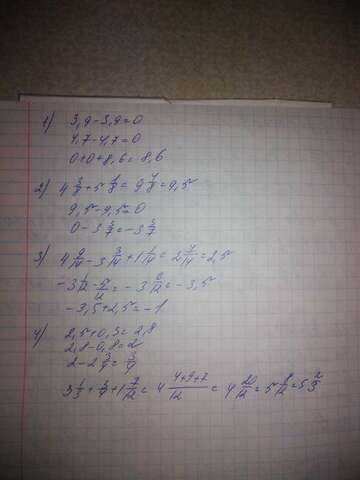 1) 3,9-3,9=0
4,7-4,7=0
0+0+8,6=8,6
2) 4 3/8+5 1/8= 9 4/8=9,5
9,5-9,5=0
0-3 5/7=-3 5/7
3) 4 9/14-3 3/14+1 1/14=2 7/14=2,5
-3 1/12-5/12=-3 6/12=-3,5
-3,5+2,5=-1
4) 2,5+0,3=2,8
2,8-0,8=2
3 1/3+3/4+1 7/12=4 4+9+7/12=4 20/12=5 8/12=5 2/3